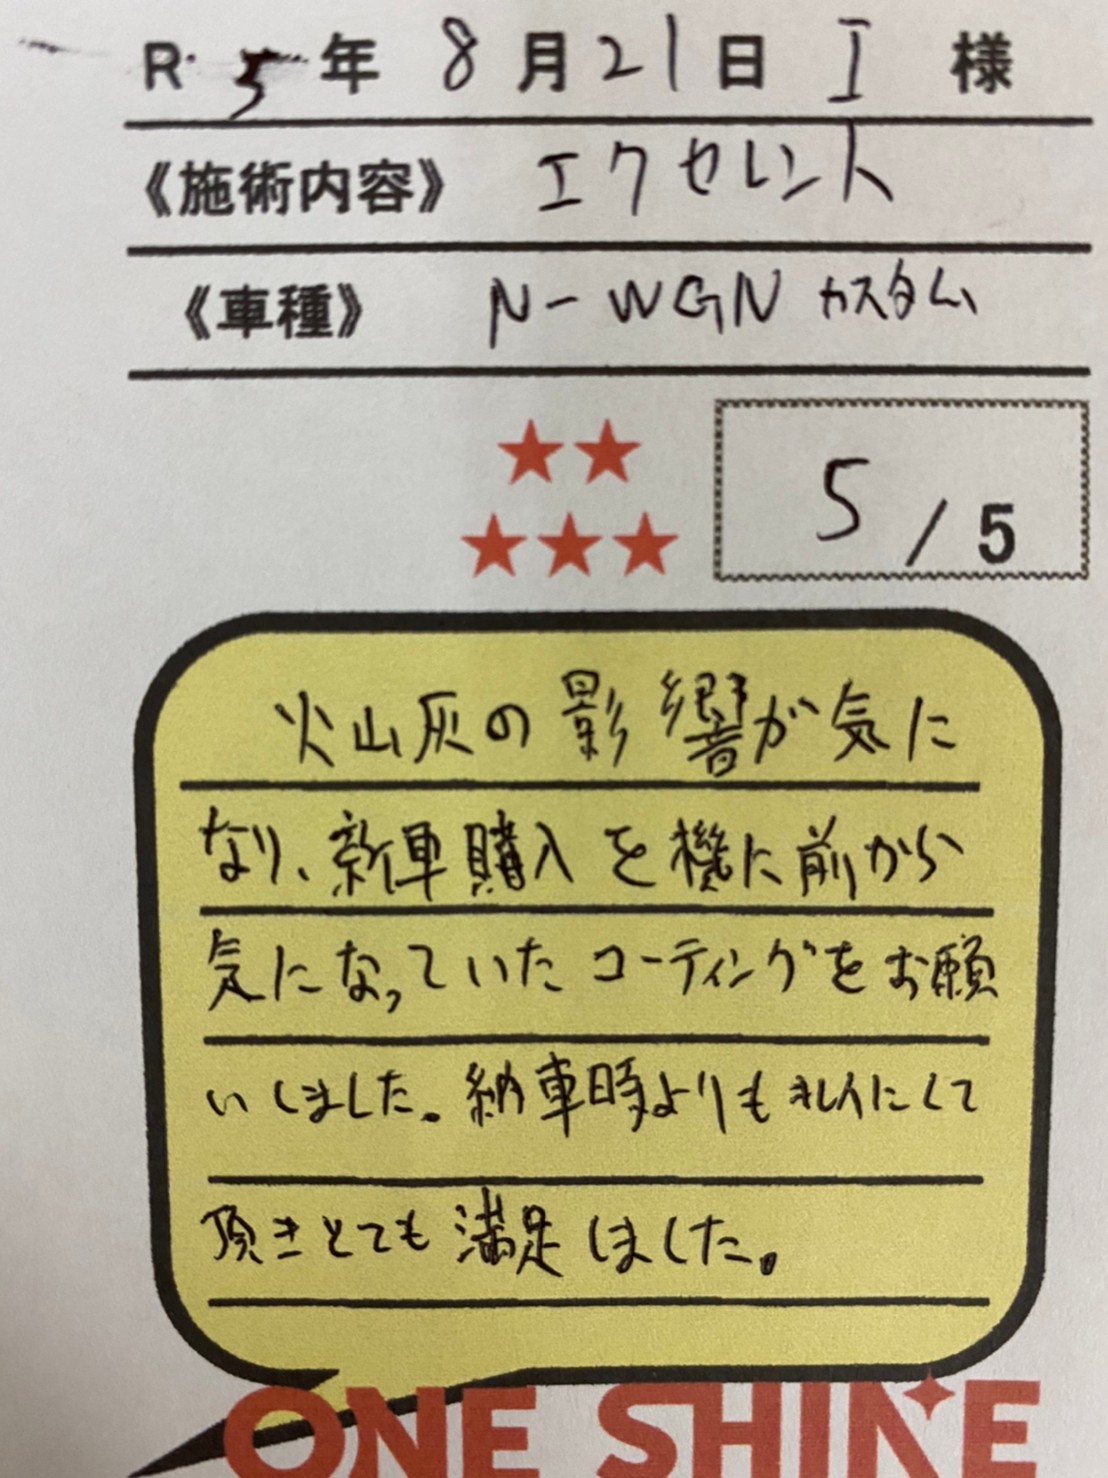 R. 5 年 8 月 21 日 I 様
《施術内容》 エクセレント
《車種》 N-WGN カスタム
★★
★★★
5 / 5
火山灰の影響が気に
なり、新車購入を機に前から
気になっていたコーティングをお願
いしました。納車時よりもキレイにして
頂きとても満足しました。
ONE SHINE